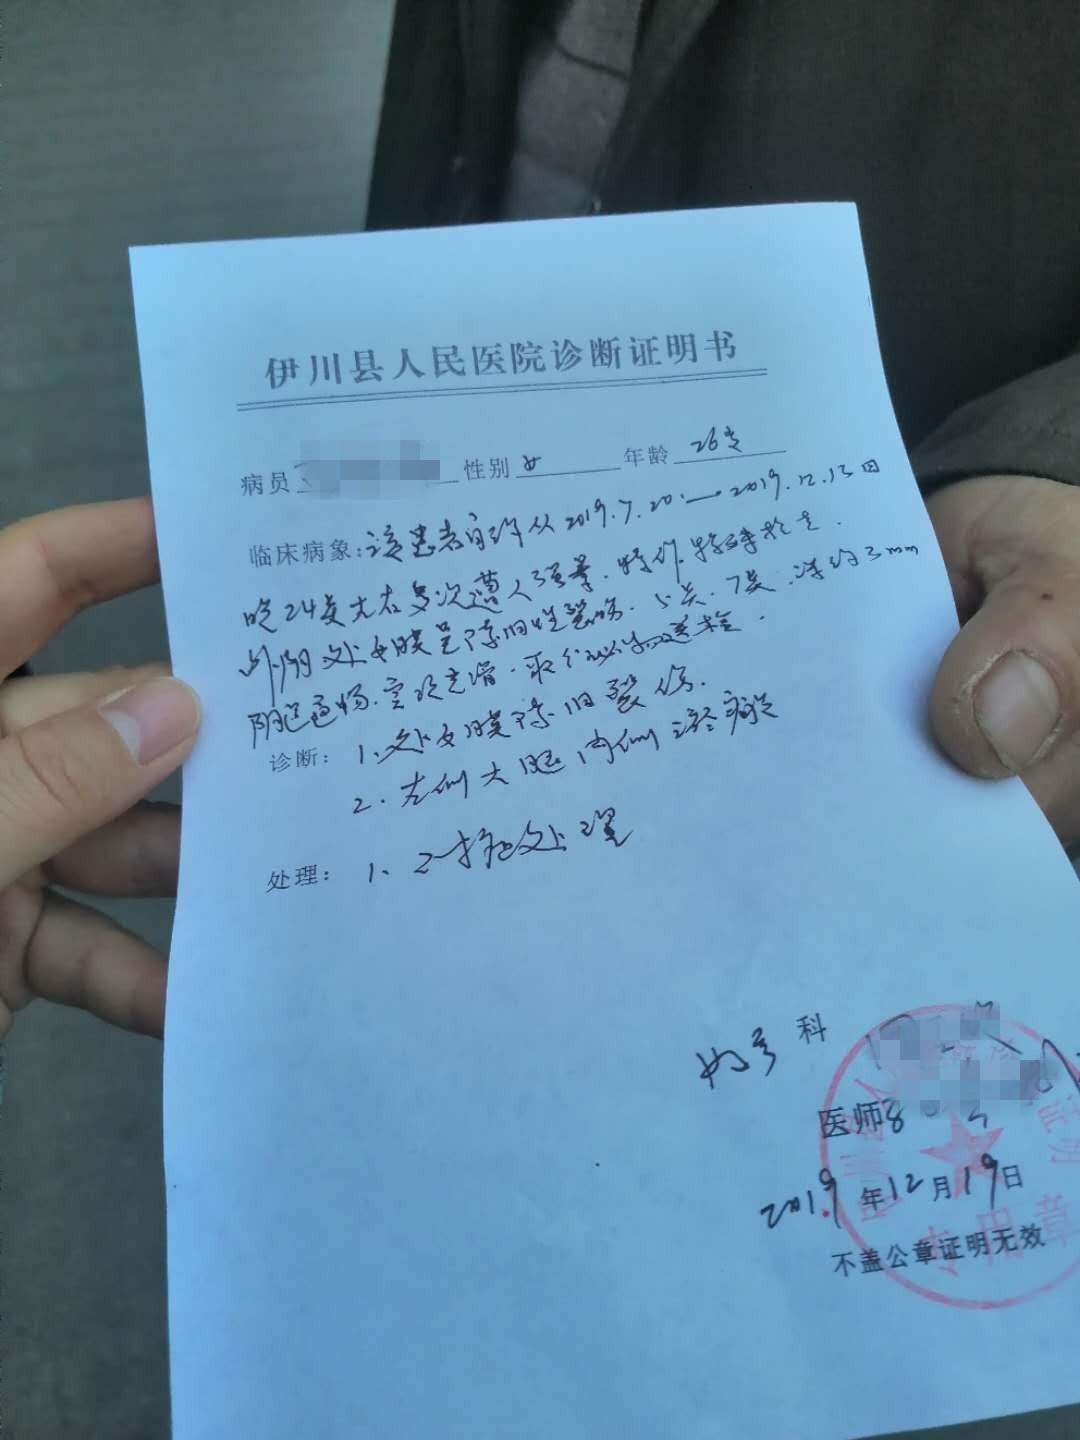 伊川县人民医院诊断证明书
病员 性别 女 年龄 26岁
临床病象：该患者自诉从2019.7.20.—2019.12.13日
晚24点左右多次遭人强拳.特作.特殊检查.
外阴处女膜呈陈旧性裂伤.5点.7点.深约3mm
阴道通畅.宫颈光滑.取分泌物送检.
诊断：1.处女膜陈旧裂伤.
2.左侧大腿内侧瘀
处理：1、处理
妇产科
医师
2019年12月19日
不盖公章证明无效
专用章